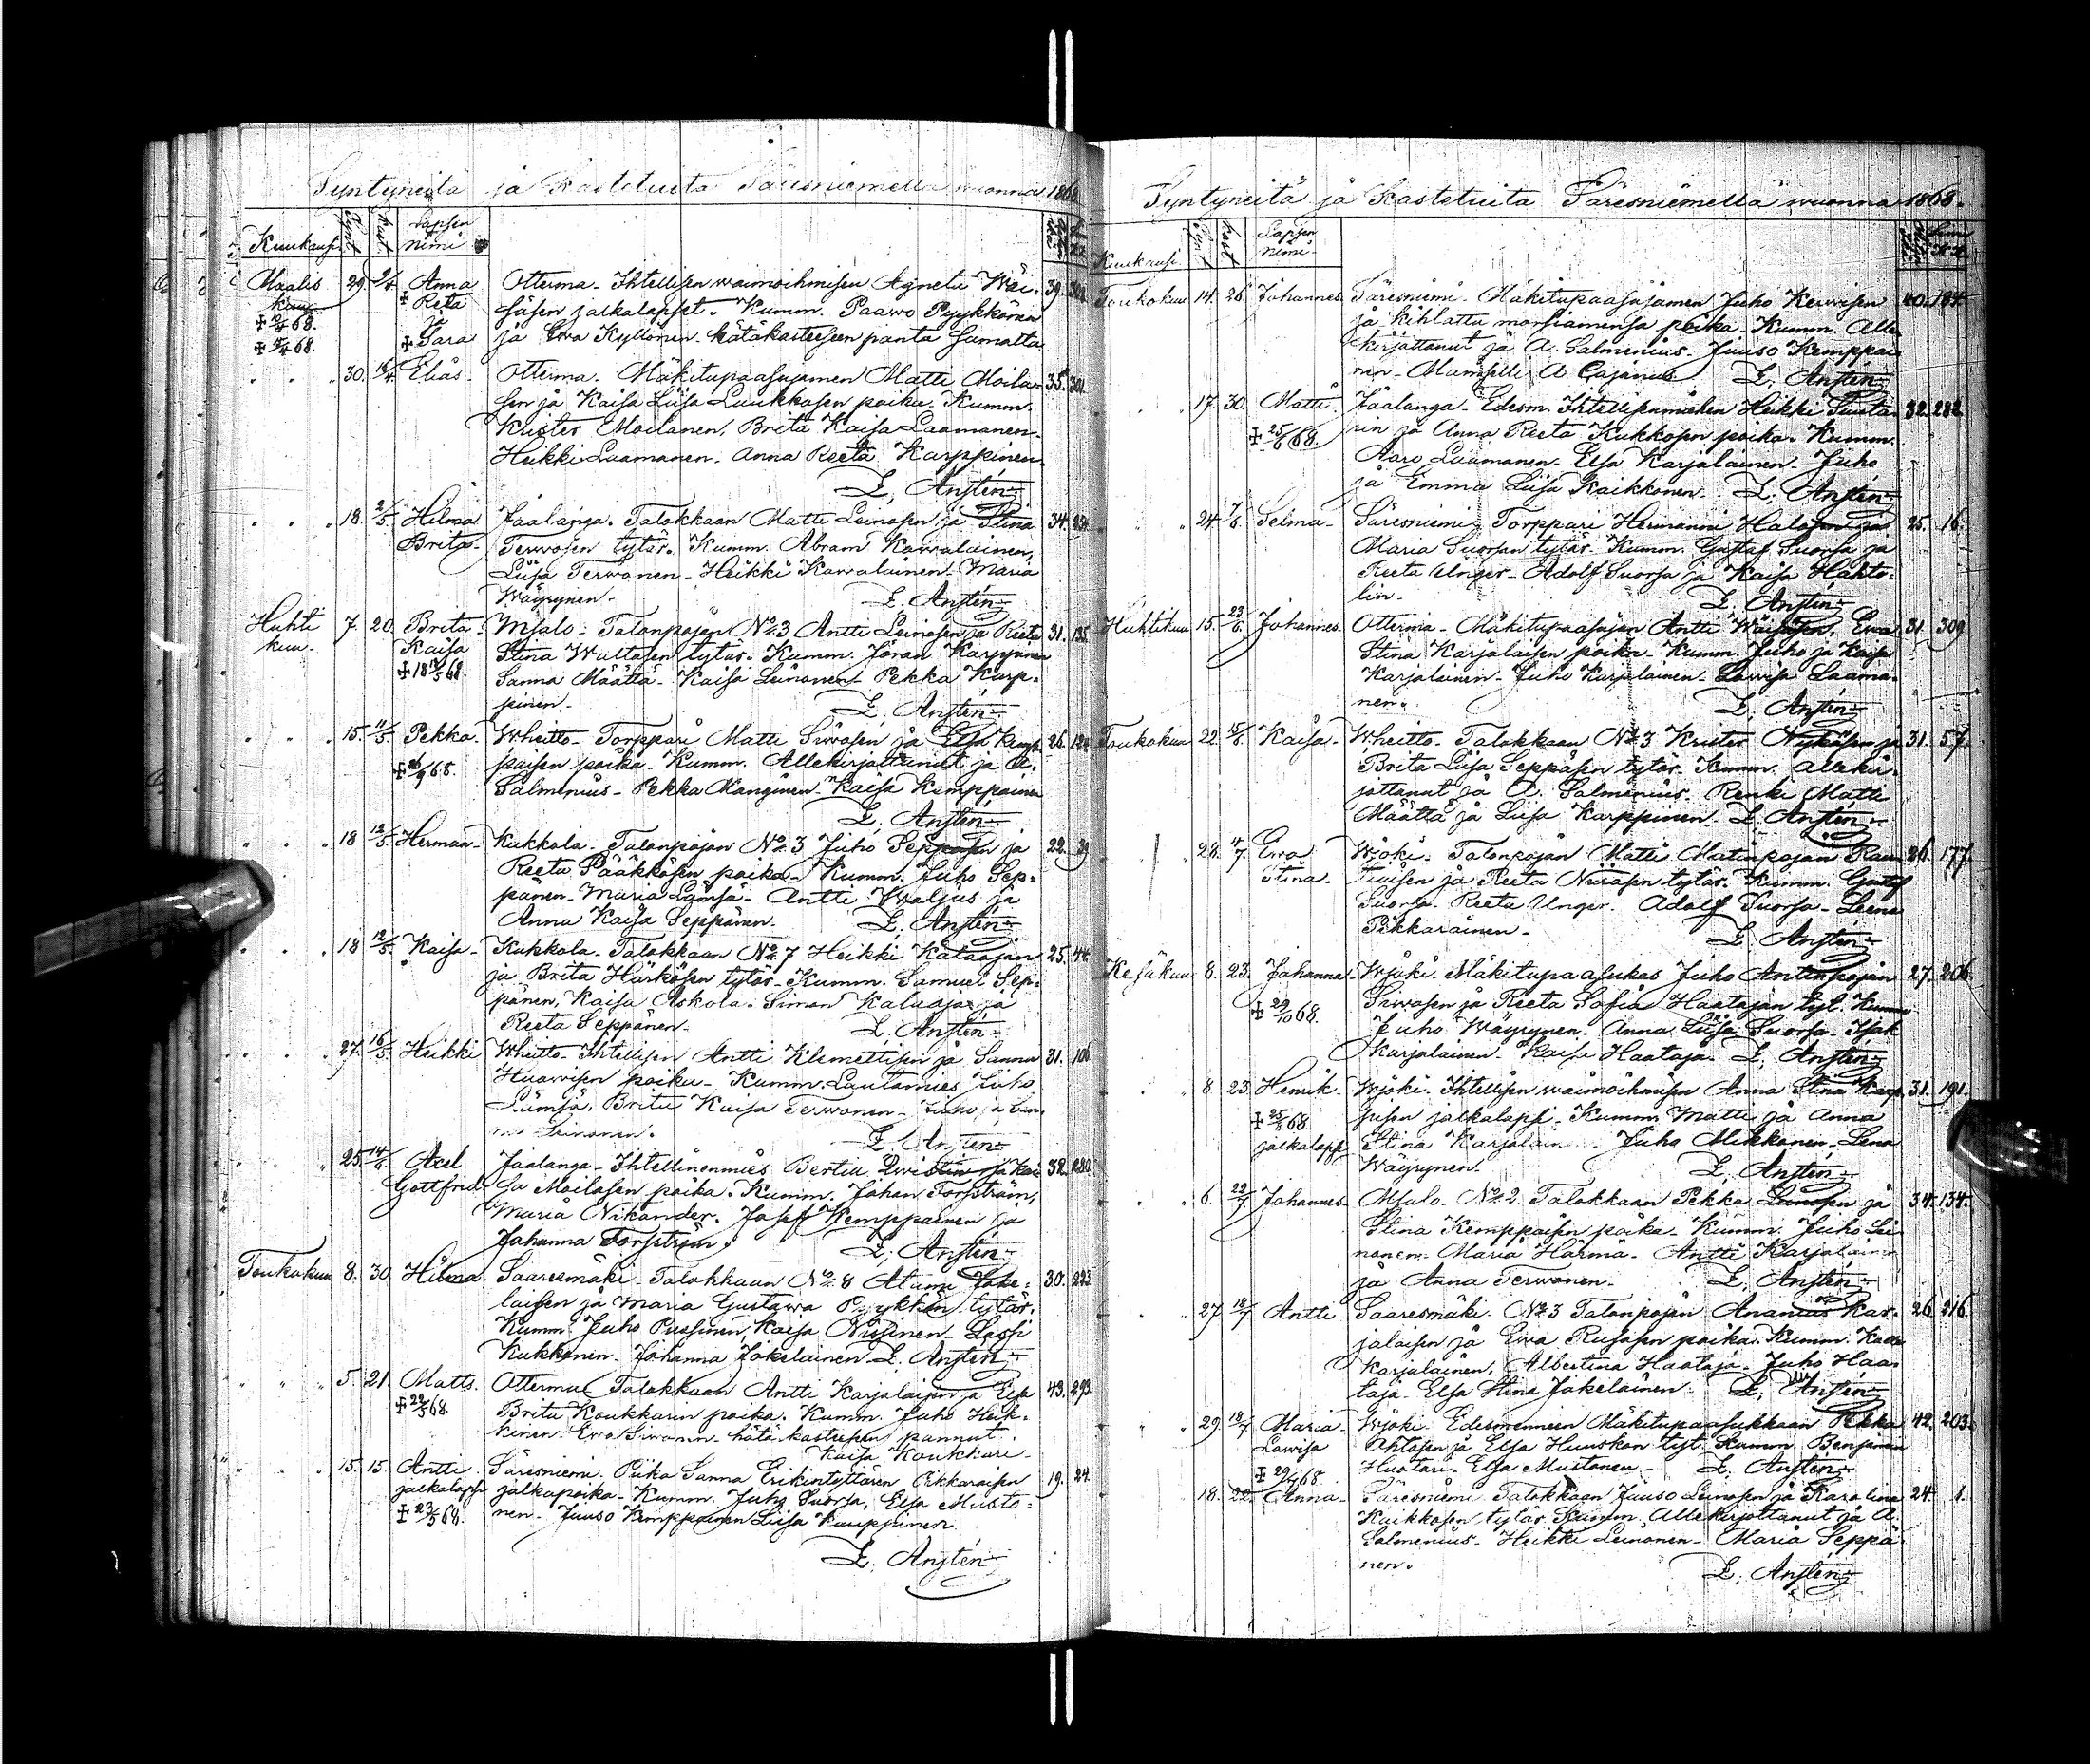 Syntyneitä ja Kastetuita Säresniemellä wuonna 1868
Kuukausi Synt. Kast. Lapsen nimi
Maalis kuu 29. 9/4 Anna Otterma. Ihtellisen waimoihmisen Agneta Wäi- 39. 302
Reta säsen jalkalapset. Kumm. Paawo Pyykkönen
ja Sara ja Ewa Kyllönen hätäkasteeseen panta samalta
30. Elias. Otterma. Mäkitupaasujamen Matti Moila- 35. 301.
sen ja Kaisa Liisa Luukkosen poika. Kumm.
Krister Moilanen, Brita Kaisa Laamanen.
Heikki Laamanen. Anna Reeta Karppinen.
L. Anstén
18. 2/5 Hilma Jaalanga. Talokkaan Matti Leinosen ja Stina 34.
Brita. Terwosen tytär. Kumm. Abram Karjalainen,
Liisa Terwonen - Heikki Karjalainen. Maria
Wäyrynen. L. Anstén
Huhti kuu. 7. 20. Brita Msalo - Talonpojan No 3 Antti Leinosen ja Reeta 31. 135
Kaisa Stina Wuttasen tytär. Kumm. Joran Karppinen
Sanna Määttä - Kaisa Leinonen - Pekka Karp-
pinen. L. Anstén
15. 11/5 Pekka. Wheitto - Torppari Matti Siwosen ja Elsa Kemp- 26.
paisen poika. Kumm. Allekirjottanut ja A.
Salmenius - Pekka Manginen - Kaisa Kemppainen
L. Anstén
18 12/5 Herman Kukkola. Talonpojan No 3 Juho Seppäsen ja 22. 39
Reeta Pääkkösen poika. Kumm. Juho Sep-
pänen - Maria Lämsä. Antti Waljus ja
Anna Kaisa Seppänen. L. Anstén
18 12/5 Kaisa. Kukkola. Talokkaan No 7 Heikki Kataajan 25. 44
ja Brita Härkösen tytär. Kumm. Samuel Sep-
pänen, Kaisa Askola. Simon Kataaja ja
Reeta Seppänen. L. Anstén
27. 16/5 Heikki Wheitto. Ihtellisen Antti Klemettisen ja Sanna 31.
Huowisen poika. Kumm. Lautamies Juho
Lämsä. Brita Kaisa Terwonen - Juho ja
Leinonen. L. Anstén
25. 14/5 Axel Jaalanga - Ihtellinenmies Bertil Qwistin ja Kai 32. 280
Gottfrid sa Moilasen poika. Kumm. Johan Forsström,
Maria Nikander. Josef Kemppainen ja
Johanna Forsström. L. Anstén
Toukokuu 8. 30. Hilma. Saaresmäki - Talokkaan No 8 Atami Joke- 30. 223
laisen ja Maria Gustawa Pyykkön tytär.
Kumm. Juho Pussinen, Kaisa Nissinen - Lassi
Kukkonen - Johanna Jokelainen. L. Anstén
5. 21. Matts. Otterma Talokkaan Antti Karjalaisen ja Elsa 43. 293
Brita Koukkarin poika. Kumm. Juho Heik-
kinen. Ewa Siwonen - hätä kasteesen pannut
Kaisa Koukkari.
15. 15. Antti Säresniemi. Piika Sanna Erikintyttären Pikkaraisen 19. 24.
jalkalapsi jalkapoika. Kumm. Juho Suorsa, Elsa Musto-
23/5 68. nen. Juuso Kemppainen Liisa Kauppinen
L. Anstén
Syntyneitä ja Kastetuita Säresniemellä wuonna 1868.
Kuukausi Synt. Kast. Lapsen nimi
Toukokuu 14. 26. Johannes. Säresniemi - Mäkitupaasujamen Juho Kerwisen 40. 184.
ja kihlattu morsiamensa poika. Kumm. Alle
kirjottanut ja A. Salmenius. Juuso Kemppai
nen - Mamselli A. Cajanus L. Anstén
17. 30. Matti. Jaalanga. Edesm. Ihtellisenmiehen Heikki Suuta- 32. 282.
25/6 68. rin ja Anna Reeta Kukkosen poika. Kumm.
Aaro Laamanen. Elsa Karjalainen. Juho
ja Emma Liisa Kaikkonen. L. Anstén
24. 7/6 Selma. Säresniemi. Torppari Hermanni Halosen ja 25. 16.
Maria Suorsan tytär. Kumm. Gustaf Suorsa ja
Reeta Unger. Adolf Suorsa ja Kaisa Hahto-
lin. L. Anstén
Huhtikuu 15. 23/6 Johannes. Otterma - Mäkitupaasujan Antti Wäisäsen, Ewa 31. 309
Stina Karjalaisen poika. Kumm. Juho ja Kaisa
Karjalainen - Juho Karjalainen - Lowisa Laama-
nen. L. Anstén
Toukokuu 22. 15/6 Kaisa. Wheitto. Talokkaan No 3 Krister Nykäsen ja 31. 57.
Brita Liisa Seppäsen tytär. Kumm. allekir-
jottanut ja A. Salmenius. Renki Matti
Määttä ja Liisa Karppinen. L. Anstén
28. 4/7 Ewa Wjoki. Talonpojan Matti Matinpojan Rau 26. 177.
Stina. tiaisen ja Reeta Niirasen tytär. Kumm. Gustaf
Suorsa. Reeta Unger. Adolf Suorsa. Leena
Pikkarainen. L. Anstén
Kesäkuu 8. 23. Johanna. Wjoki. Mäkitupaasukas Juho Antinpojan 27. 206
29/10 68. Siwosen ja Reeta Sofia Haatajan tyt. Kumm
Juho Wäyrynen. Anna Liisa Suorsa. Isak
Karjalainen. Kaisa Haataja. L. Anstén
8 23. Henrik. Wjoki. Ihtellisen waimoihmisen Anna Stina Karp 31. 191.
jalkalapsi pisen jalkalapsi. Kumm. Matti ja Anna
Stina Karjalain Juho Mikkonen. Lena
Wäyrynen. L. Anstén
6. 22/7 Johannes. Msalo. No 2. Talokkaan Pekka Leinosen ja 34. 134.
Stina Kemppaisen poika. Kumm. Juho Lei-
nonen. Maria Härmä. Antti Karjalainen
ja Anna Terwonen. L. Anstén
27 12/7 Antti Saaresmäki. No 3 Talonpojan Ananias Kar- 26. 216
jalaisen ja Ewa Rusasen poika. Kumm. Kalle
Karjalainen, Albertina Haataja. Juho Haa-
taja. Elsa Stina Jokelainen. L. Anstén
29. 12/7 Maria Wjoki. Edesmenneen Mäkitupaasukkaan Pekka 42. 203.
Lowisa Ahtosen ja Elsa Huuskon tyt. Kumm. Benjamin
Huotari. Elsa Mustonen. L. Anstén
18. 22. Anna. Säresniemi. Talokkaan Juuso Leinosen ja Karolina 24. 1.
Kaikkosen tytär. Kumm. Allekirjottanut ja A.
Salmenius. Heikki Leinonen. Maria Seppä
nen. L. Anstén